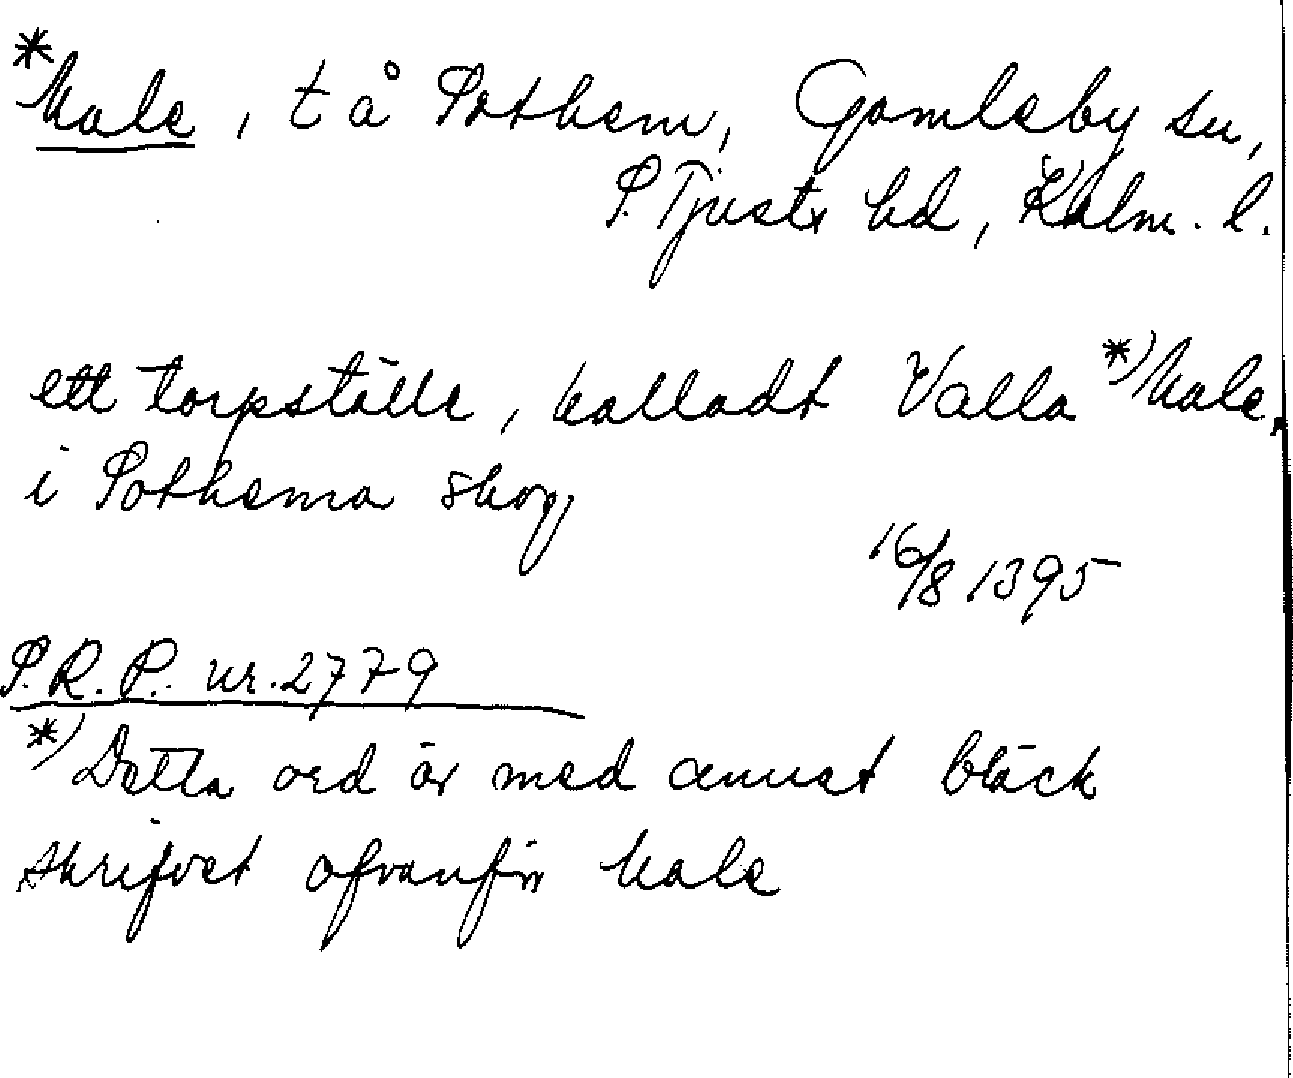 *Kale, t å Sothem, Gamleby sn,
S. Tjusts hd, Kalm. l.
ett torpställe, kalladt Valla *) kale,
i Sothema skog,
16/8 1395
S.R.P. nr. 2779
*) Detta ord är med annat bläck
skrifvet ofvanför kale